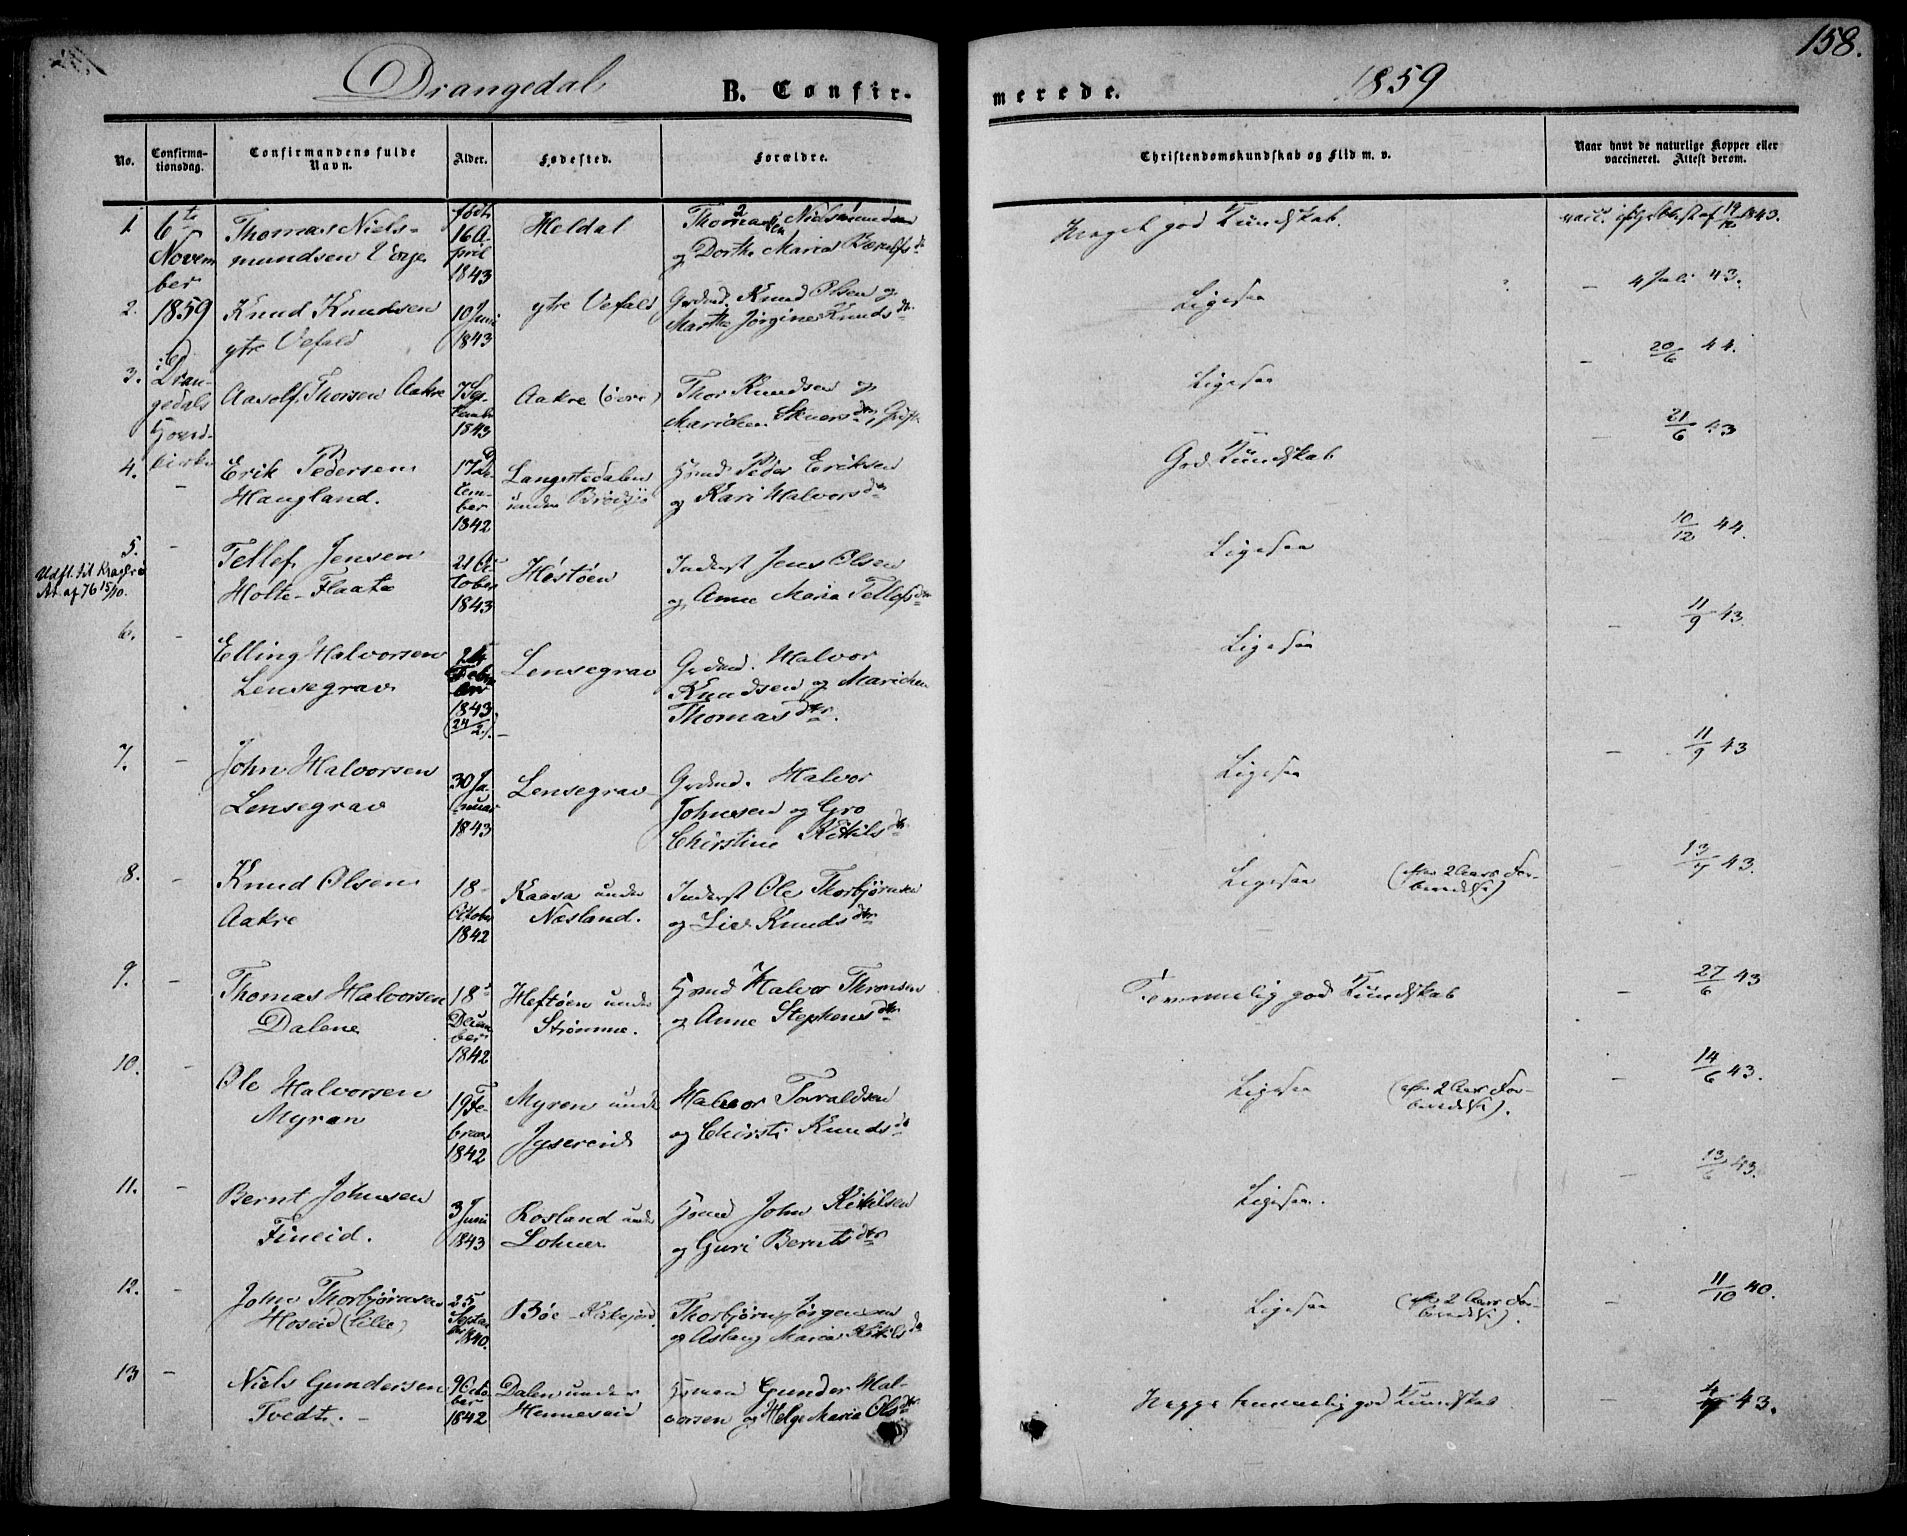 158.
Drangedal
B. Confirmerede.
1859
No.
Confirmationsdag.
Confirmandens fulde Navn.
Alder.
Fødested.
Forældre.
Christendomskundskab og Flid m. v.
Naar havt de naturlige Kopper eller vaccineret. Attest derom.
1. 6te November 1859 i Drangedals Hovedkirke
Thomas Nielsmundsen
født 16 April 1843
Heldal
Thomas Nielsmundsen og Dorthe Maria
Meget god Kundskab.
vacc. 1843.
2.
Knud Knudsen ytre Vefald
10 Juni 1843
ytre Vefald
Grdmd. Knud Olsen og Marthe Jørgine Knudsdtr.
Ligesaa
4 Juli 43.
3.
Aasolf Thorsen Aakre
7 September 1843
Aakre (øvre)
Thor Knudsen og Marichen
Ligesaa
- 20/6 44.
4. -
Erik Pedersen Haugland.
17 December 1842
Langstedalen under Brødsjø
Hsmd. Peder Eriksen og Kari Halvorsdtr
God Kundskab
- 21/6 43
5. -
Udfl. til Kragerø At. af 76 15/10.
Tellef Jensen Holte-Flaate
21 October 1843
Høstøen
Inderst Jens Olsen og Anne Maria Tellefsdtr
Ligesaa
- 10/12 44.
6. -
Elling Halvorsen Lensegrav
24 Februar 1843 (24/2).
Lensegrav
Grdmd. Halvor Knudsen og Marichen Thomasdtr.
Ligesaa
- 11/9 43.
7. -
John Halvorsen Lensegrav
30 Januar 1843
Lensegrav
Grdmd. Halvor Johnsen og Gro Chirstine Kittilsdtr.
Ligesaa
- 11/9 43
8. -
Knud Olsen Aakre
18 October 1842
Kaasa under Næsland.
Inderst Ole Thorbjørnsen og Live Knudsdtr
Ligesaa (efter 2 Aars Forberedelse)
- 43.
9. -
Thomas Halvorsen Dalene
18 December 1842
Heftøen under Strømme.
Hsmd Halvor Thronsen og Anne Stephensdtr
Temmelig god Kundskab
- 27/6 43
10. -
Ole Halvorsen Myran
19 Februar 1842
Myren under
Halvor Toraldsen og Chirsti Knudsdtr
Ligesaa (efter 2 Aars Forberedelse).
- 14/6 43.
11. -
Bernt Johnsen Fineid.
3 Juni 1843
Rosland under
Hsmd John Kittilsen og Guri Berntsdtr
Ligesaa.
- 13/6 43.
12. -
John Thorbjørnsen Hoseid (lille)
25 September 1840.
Bøe
Thorbjørn Jørgensen og Aslaug Maria Kittilsdtr
Ligesaa (efter 2 Aars Forberedelse).
- 11/10 40.
13 -
Niels Gundersen Tvedt. -
9 October 1842
Dalen under Henneseid
Hsmand Gunder Halvorsen og Helge Maria Olsdtr
temmelig god Kundskab
- 43.